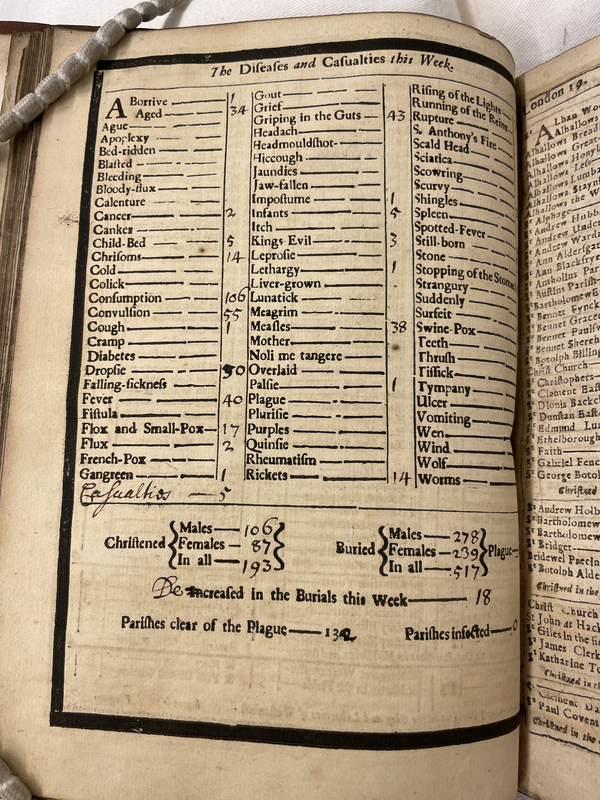 The Diſeaſes and Caſualties this Week.
ABortive 1
Aged 34
Ague
Apoplexy
Bed-ridden
Blaſted
Bleeding
Bloody-flux
Calenture
Cancer 2
Canker
Child-Bed 5
Chriſoms 14
Cold
Colick
Conſumption 106
Convulſion 55
Cough 1
Cramp
Diabetes
Dropſie 50
Falling-ſickneſs
Fever 40
Fiſtula
Flox and Small-Pox 17
Flux 2
French-Pox
Gangreen 1
Caſualties 5
Gout
Grief
Griping in the Guts 43
Headach
Headmouldſhot
Hiccough
Jaundies
Jaw-fallen
Impoſtume 1
Infants 5
Itch
Kings Evil 3
Leproſie
Lethargy 1
Liver-grown
Lunatick
Meagrim
Meaſles 38
Mother
Noli me tangere
Overlaid
Palſie 1
Plague
Pluriſie
Purples
Quinſie
Rheumatiſm
Rickets 14
Riſing of the Lights
Running of the Reins
Rupture
S. Anthony's Fire
Scald Head
Sciatica
Scowring
Scurvy
Shingles
Spleen
Spotted-Fever
Still-born
Stone
Stopping of the
Strangury
Suddenly
Surfeit
Swine-Pox
Teeth
Thruſh
Tiſſick
Tympany
Ulcer
Vomiting
Wen
Wind
Wolf
Worms
Chriſtened { Males 106
Females 87
In all 193 }
Buried { Males 278
Females 239
In all 517 } Plague
Decreaſed in the Burials this Week 18
Pariſhes clear of the Plague 132 Pariſhes infected 0
London 19.
Alhallows Bread
Alhallows Great
Alhallows Leſs
Alhallows the W
St Alphage
St Andrew Hubb
St Andrew Under
St Andrew Ward
St Ann Alderſgat
St Ann Blackfrye
St Bennet Fynck
St Bennet Grace
St Bennet Paulſ
St Bennet Shereh
St Botolph Billing
Chriſt Church
St Chriſtophers
St Clement Eaſt
St Dionis Backch
St Dunſtan Eaſt
St Edmund Lu
St Ethelborough
St Faith
St Gabriel Fenc
St George Botol
Chriſtned
St Andrew Holb
St Bartholomew
St Bartholomew
St Bridget
Bridewel Precin
St Botolph Alde
Chriſtned in the
Chriſt Church
St John at Hack
St Giles in the fie
St James Clerk
St Katharine To
Chriſtned in
St Clement Da
St Paul Covent
Chriſtned in the